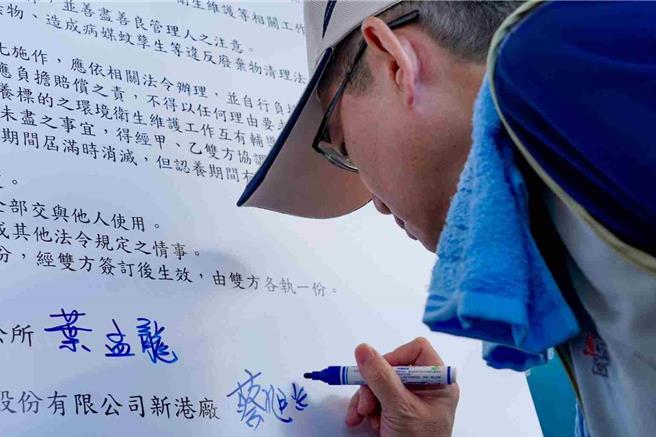 ，並善盡善良管理人之注意。
衛生維護等相關工作
物、造成病媒蚊孳生等違反廢棄物清理法
施作，應依相關法令辦理，並自行負
應負擔賠償之責，不得以任何理由要
養標的之環境衛生維護工作互有輔導
未盡之事宜，得經甲、乙雙方協調
期間屆滿時消滅，但認養期間
。
全部交與他人使用。
或其他法令規定之情事。
份，經雙方簽訂後生效，由雙方各執一份。
公所 葉孟龍
股份有限公司新港廠 蔡